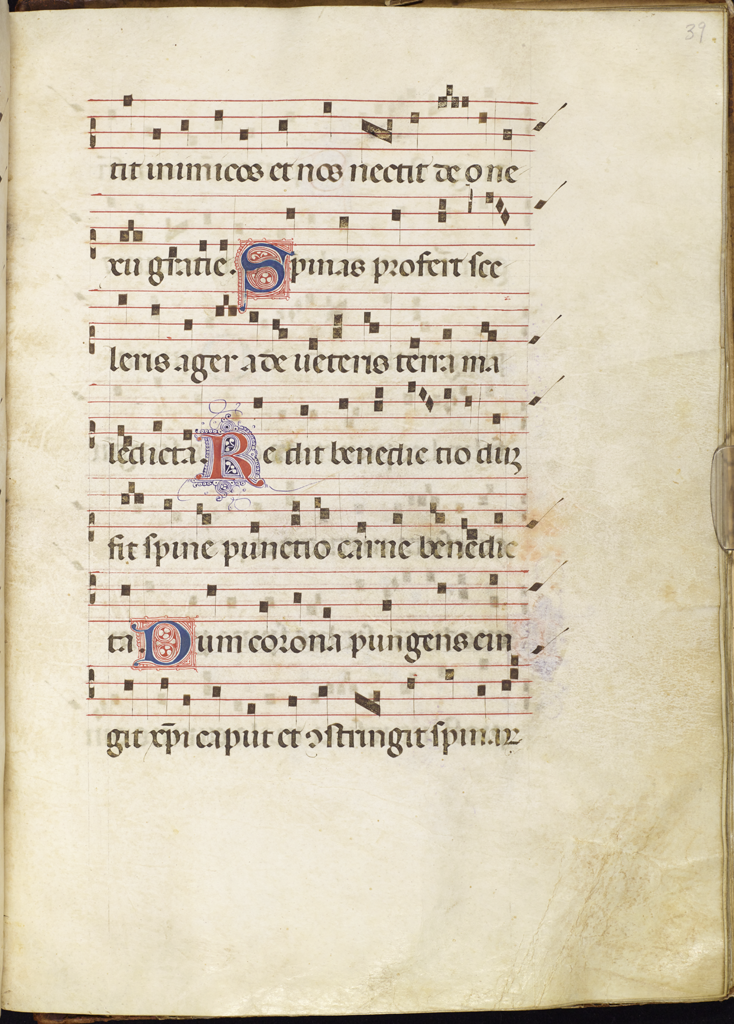 39
tit inimicos et nos nectit de o ne
xu gratie. Spinas profert sce
leris ager a de ueteris terra ma
ledicta. Re dit benedic tio duꝫ
fit spine punctio carne benedic
ta. Dum corona pungens cin
git xp̅i caput et ꝯstringit spinaꝝ